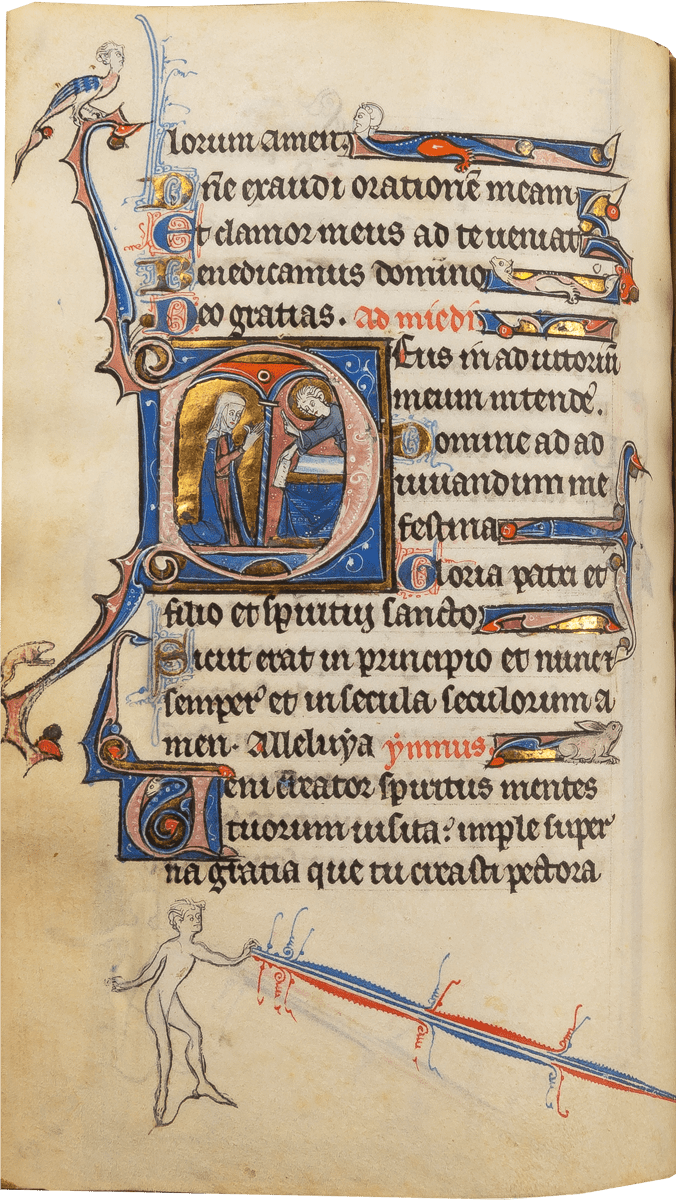 lorum amen.
Dñe exaudi orationē meam
Et clamor meus ad te ueniat
Benedicamus domino
Deo gratias. Ad miedi
Deus in adiutoriū
meum intende.
Domine ad ad
iuuandum me
festina
Gloria patri et
filio et spiritui sancto
Sicut erat in principio et nunc et
semper et in secula seculorum a
men. Alleluya ynmus.
Ueni creator spiritus mentes
tuorum uisita: imple super
na gratia que tu creasti pectora